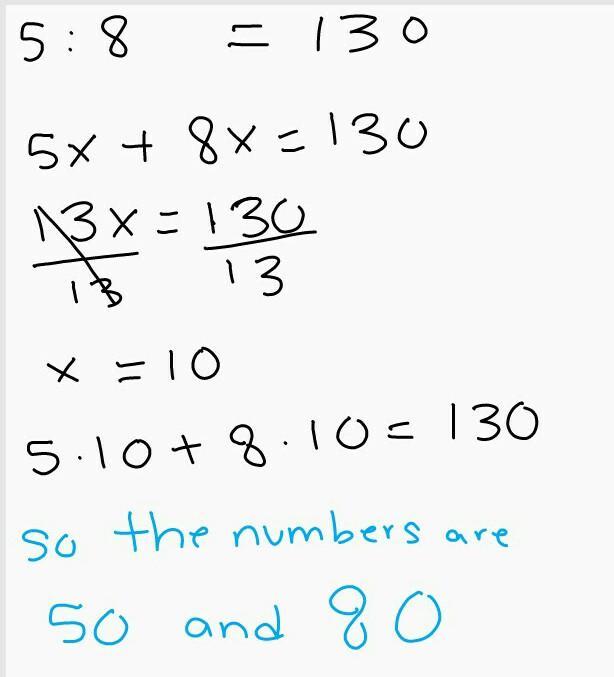 5 : 8 = 130
5x + 8x = 130
13x = 130
13 13
x = 10
5 · 10 + 8 · 10 = 130
so the numbers are
50 and 80